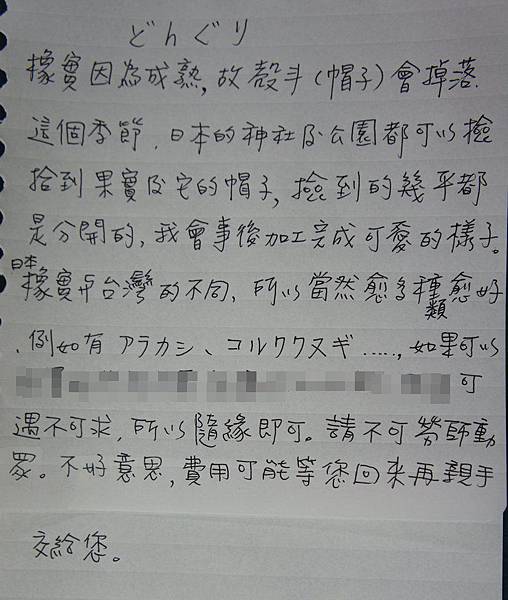 どんぐり
橡實因為成熟,故殼斗(帽子)會掉落.
這個季節,日本的神社及公園都可以撿
拾到果實及它的帽子,撿到的幾乎都
是分開的,我會事後加工完成可愛的樣子。
日本
橡實与台灣的不同,所以當然愈多種類愈好
、例如有 アラカシ、コルククヌギ……,如果可以
可
遇不可求,所以隨緣即可。請不可勞師動
眾。不好意思,費用可能等您回來再親手
交給您。